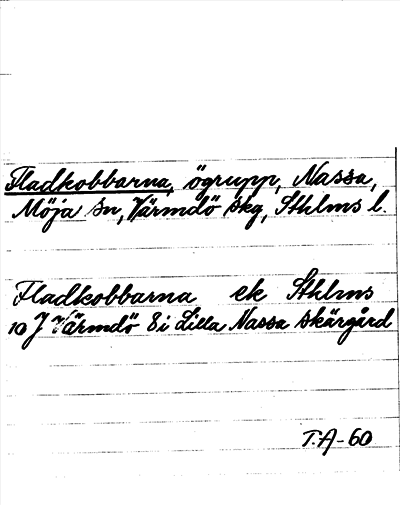 Fladkobbarna, ögrupp, Nassa,
Möja sn, Värmdö skg, Sthlms l.
Fladkobbarna ek Sthlms
10 J Värmdö 8 i Lilla Nassa skärgård
T.A-60